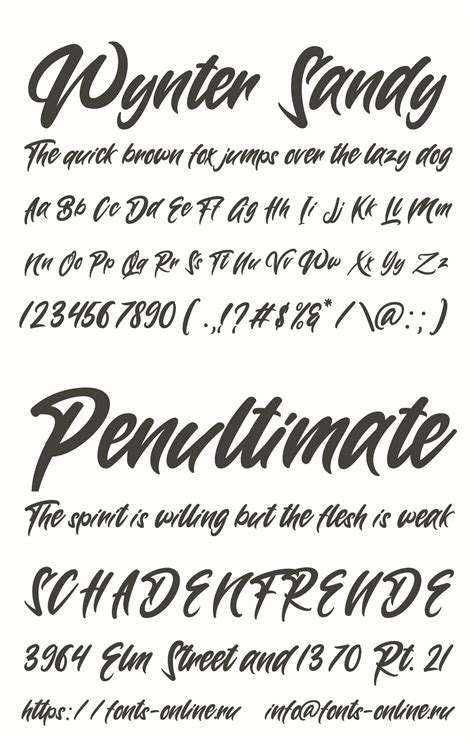 Wynter Sandy
The quick brown fox jumps over the lazy dog
Aa Bb Cc Dd Ee Ff Gg Hh Ii Jj Kk Ll Mm
Nn Oo Pp Qq Rr Ss Tt Uu Vv Ww Xx Yy Zz
1234567890 ( .,!?#$%&* / \@:; )
Penultimate
The spirit is willing but the flesh is weak
SCHADENFREUDE
3964 Elm Street and 1370 Rt. 21
https://fonts-online.ru info@fonts-online.ru